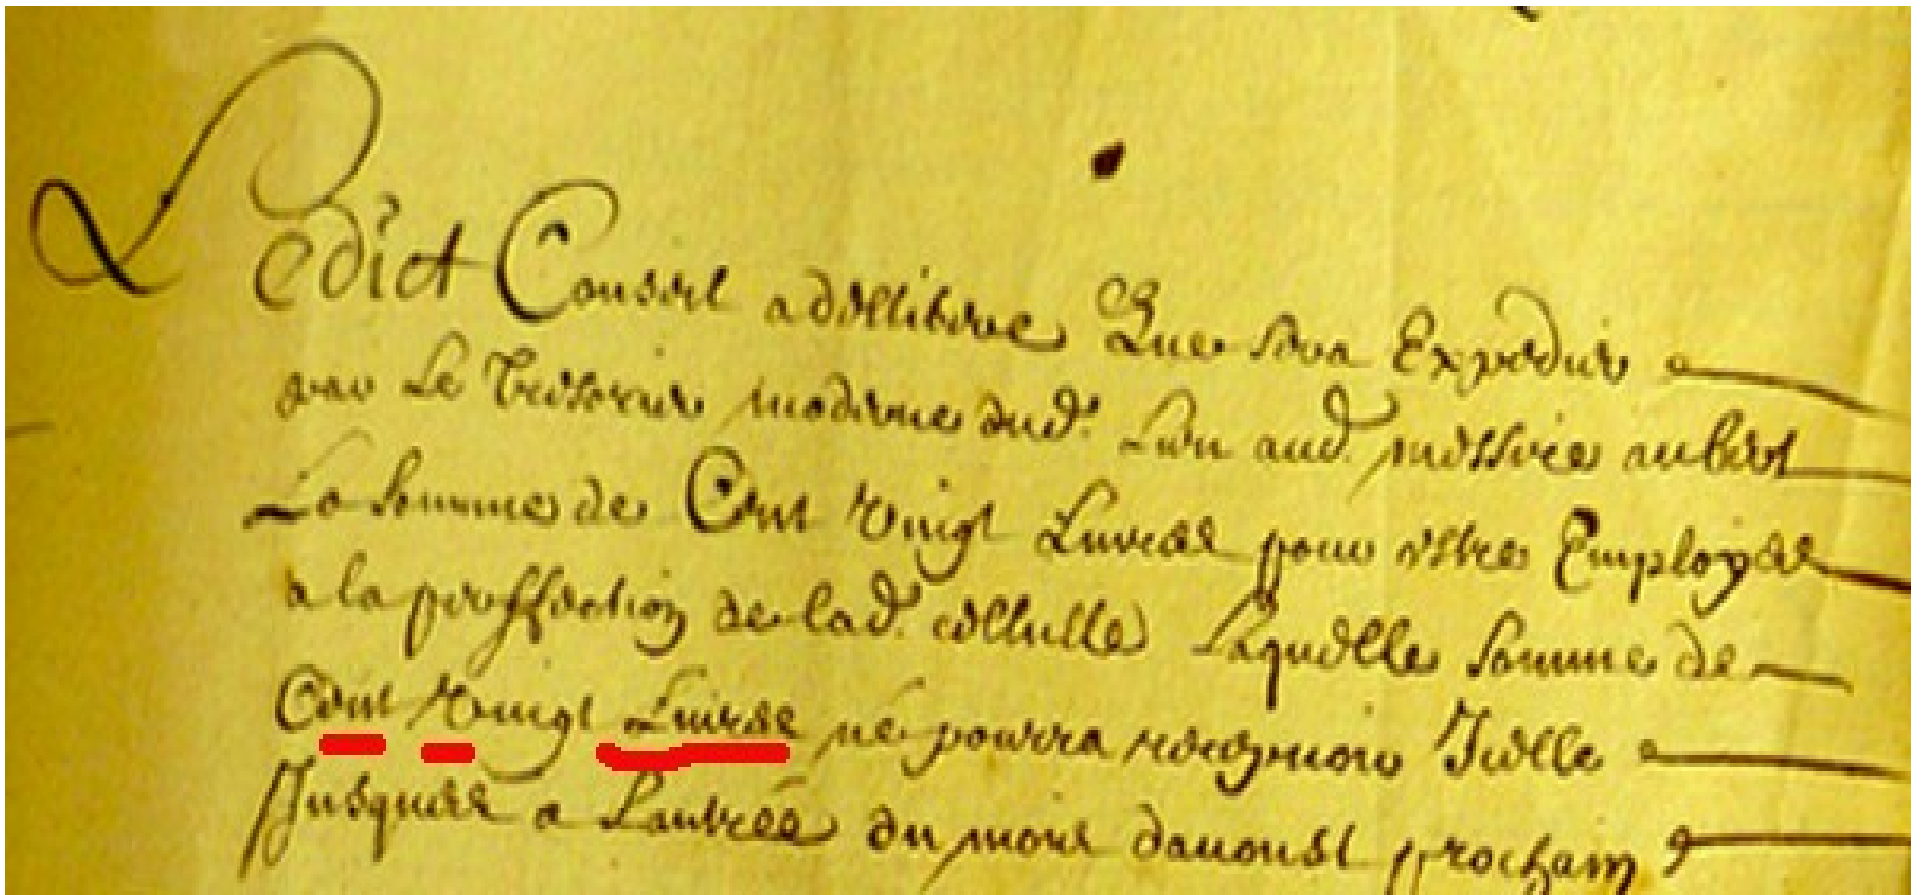 Ledict Conseil a dellibere Que sera Expedie
par Le Tresorier moderne dud. Lieu aud. messire aubert
La somme de Cent vingt Livres pour estre Employee
a la preffection de lad. Laquelle somme de
Cent vingt Livres ne pourra Icelle
Jusques a Lantree du mois daoust prochain